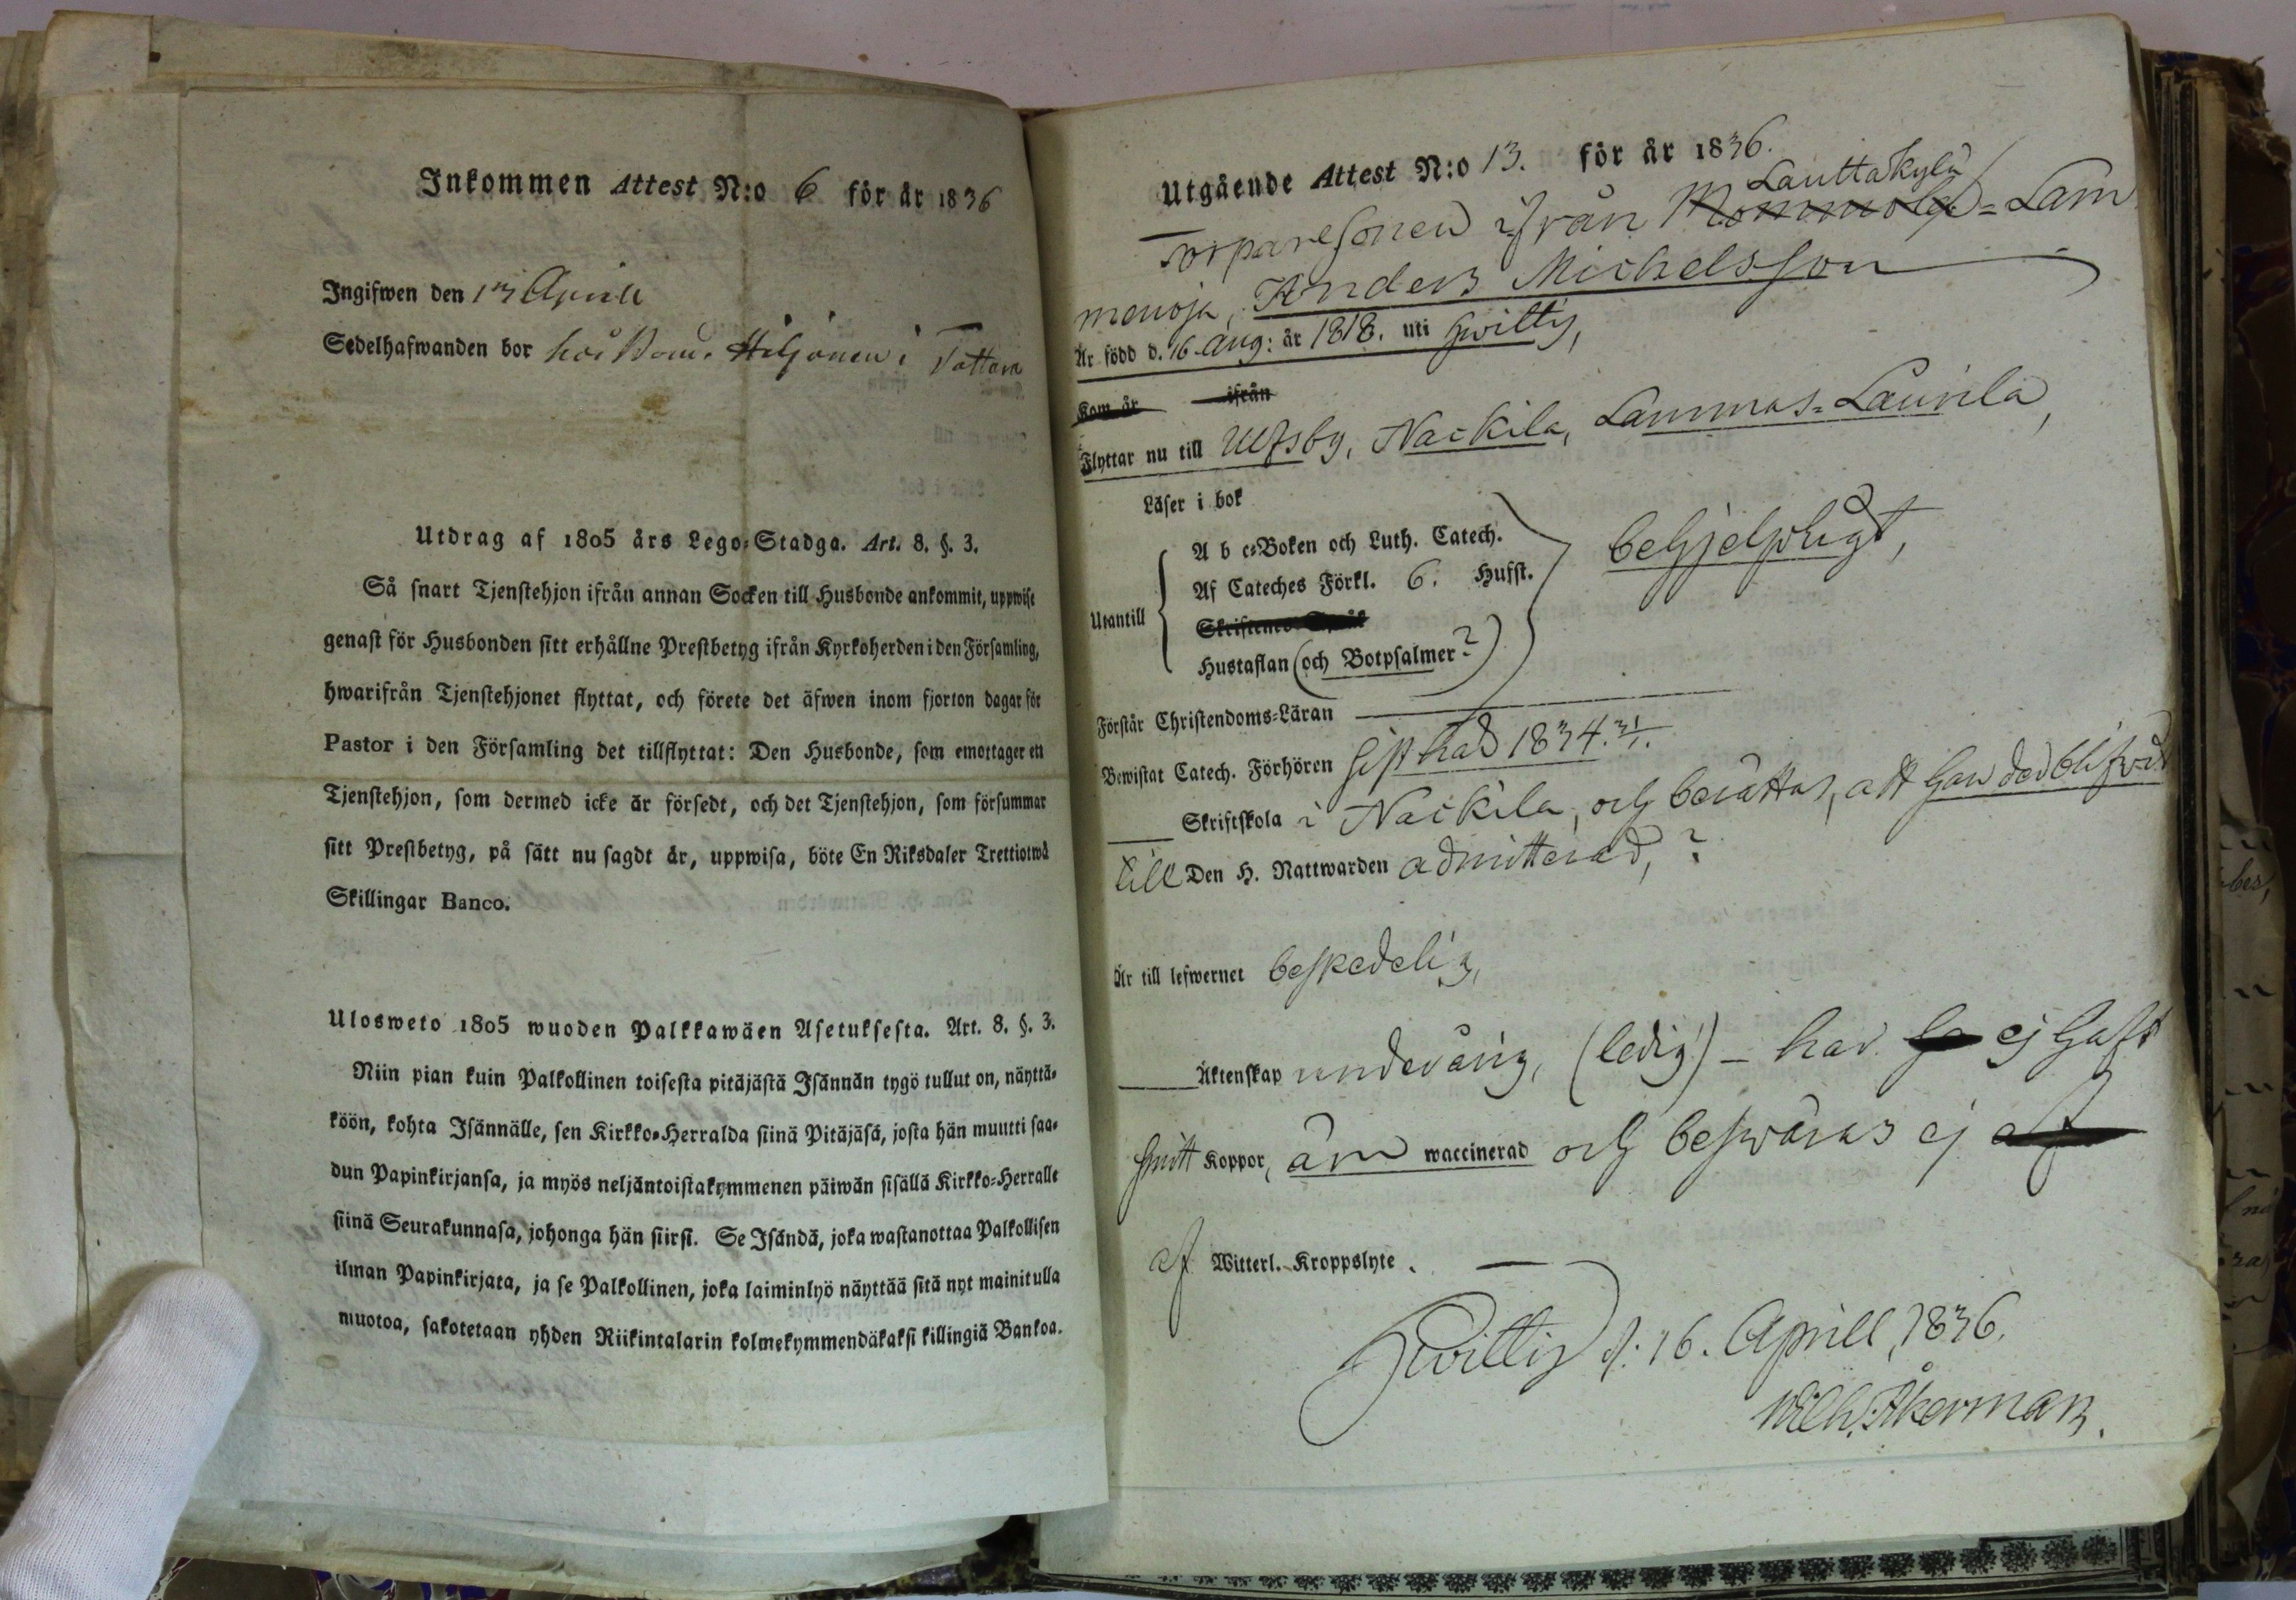 Inkommen Attest N:o 6 för år 1836
Ingifwen den 17 Aprill
Sedelhafwanden bor hos Bond. i Tattara
Utdrag af 1805 års Lego-Stadga. Art. 8. §. 3.
Så snart Tjenstehjon ifrån annan Socken till Husbonde ankommit, uppwise
genast för Husbonden sitt erhållne Prestbetyg ifrån Kyrkoherden i den Församling,
hwarifrån Tjenstehjonet flyttat, och förete det äfwen inom fjorton dagar för
Pastor i den Församling det tillflyttat: Den Husbonde, som emottager ett
Tjenstehjon, som dermed icke är försedt, och det Tjenstehjon, som försummar
sitt Prestbetyg, på sätt nu sagdt är, uppwisa, böte En Riksdaler Trettiotwå
Skillingar Banco.
Ulosweto 1805 wuoden Palkkawäen Asetuksesta. Art. 8. §. 3.
Niin pian kuin Palkollinen toisesta pitäjästä Isännän tygö tullut on, näyttä-
köön, kohta Isännälle, sen Kirkko-Herralda siinä Pitäjäsä, josta hän muutti saa-
dun Papinkirjansa, ja myös neljäntoistakymmenen päiwän sisällä Kirkko-Herralle
siinä Seurakunnasa, johonga hän siirsi. Se Isändä, joka wastanottaa Palkollisen
ilman Papinkirjata, ja se Palkollinen, joka laiminlyö näyttää sitä nyt mainitulla
muotoa, sakotetaan yhden Riikintalarin kolmekymmendäkaksi killingiä Bankoa.
Utgående Attest N:o 13. för år 1836.
Lauttakylä
Torparesonen ifrån Mommola = Lam
menoja, Anders Michelsson
Är född d. 16 Aug: år 1818. uti Hwittis,
Kom år ifrån
Flyttar nu till Ulfsby, Nackila, Lammas-Laurila,
Läser i bok
A b c-Boken och Luth. Catech.
behjelpligt,
Af Cateches Förkl. 6. Hufst.
Utantill
Hustaflan (och Botpsalmer?)
Förstår Christendoms-Läran
Bewistat Catech. Förhören sisthad 1834.
Skriftskola i Nackila, och berättas, att han der blifvit
till Den H. Nattwarden admitterad, ?
Är till lefwernet beskedelig,
Äktenskap underårig, (ledig) - har ha ej haft
smitt Koppor, än waccinerad och beswäras ej af
af Witterl. Kroppslyte.
Hwittis d. 16. Aprill, 1836.
Wilh. Åkerman.